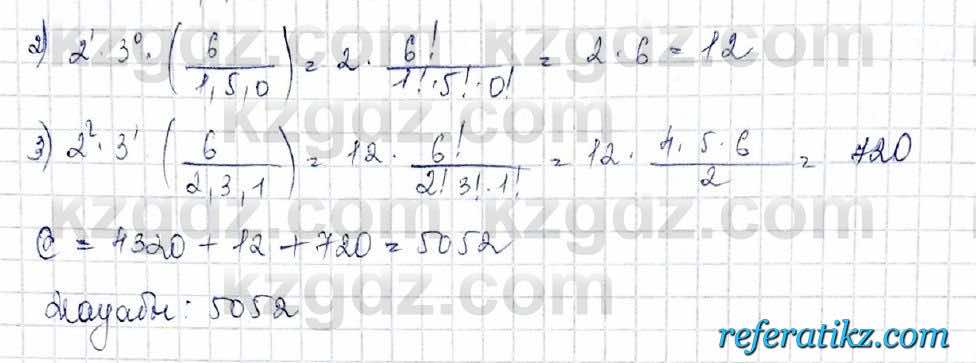 2) 2¹ · 3⁰ · (6 / 1, 5, 0) = 2 · 6! / 1! · 5! · 0! = 2 · 6 = 12
3) 2² · 3¹ (6 / 2, 3, 1) = 12 · 6! / 2! 3! · 1! = 12 · 4 · 5 · 6 / 2 = 720
C = 4320 + 12 + 720 = 5052
Жауабы: 5052
kzgdz.com
kzgdz.com
kzgdz.com
kzgdz.com
referatikz.com